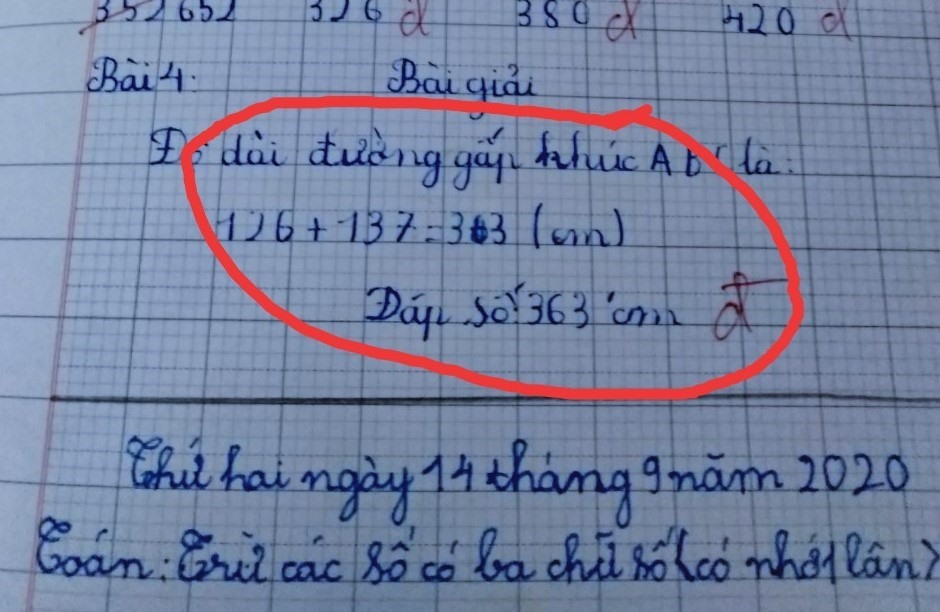 352 652 326 đ 380 đ 420 đ
Bài 4: Bài giải
Độ dài đường gấp khúc ABC là:
126 + 137 = 363 (cm)
Đáp số: 363 cm đ
Thứ hai ngày 14 tháng 9 năm 2020
Toán: Trừ các số có ba chữ số (có nhớ 1 lần)